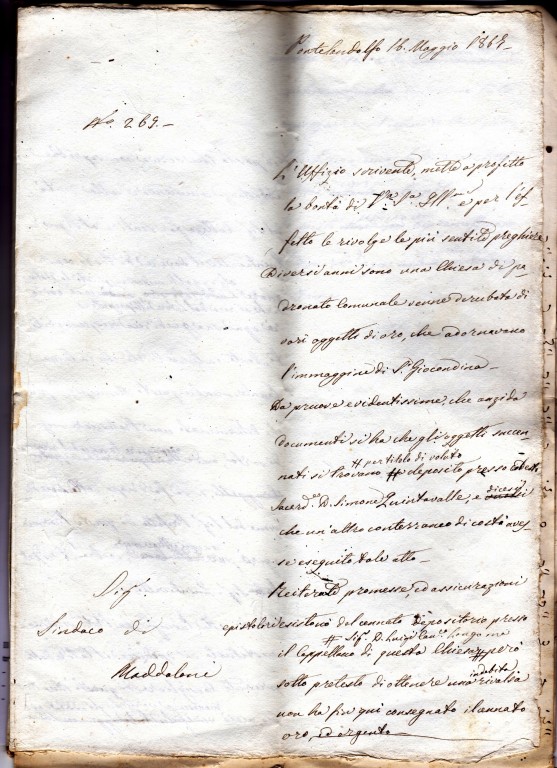 Pontelandolfo 16. Maggio 1869_
N.o 269._
L'Uffizio scrivente, mette a profitto
la bontà di V.ra S.a Ill.ma e per l'ef-
fetto le rivolge le più sentite preghiere
Diversi anni sono una Chiesa di pa-
dronato Comunale venne derubata di
vari oggetti di oro, che adornavano
l'immaggine di S.a Giocondina_
Da pruove evidentissime, che anzi da
documenti si ha che gli oggetti succen-
# per titolo di voluto
nati si trovano # deposito presso
Sacerd.e D. Simone Quintavalle, e dicesi
che un'altro conterraneo di costà aves-
se eseguito tale atto_
Reiterate promesse, ed assicurazioni
epistolari esistono del cennato Depositario presso
# Sig. D. Luigi Can.co Longo ma
il Cappellano di questa Chiesa # però
indebita
sotto pretesto di ottenere una rivalsa
non ha fin qui consegnato il cennato
oro, ed argento
Sig.
Sindaco di
Maddaloni